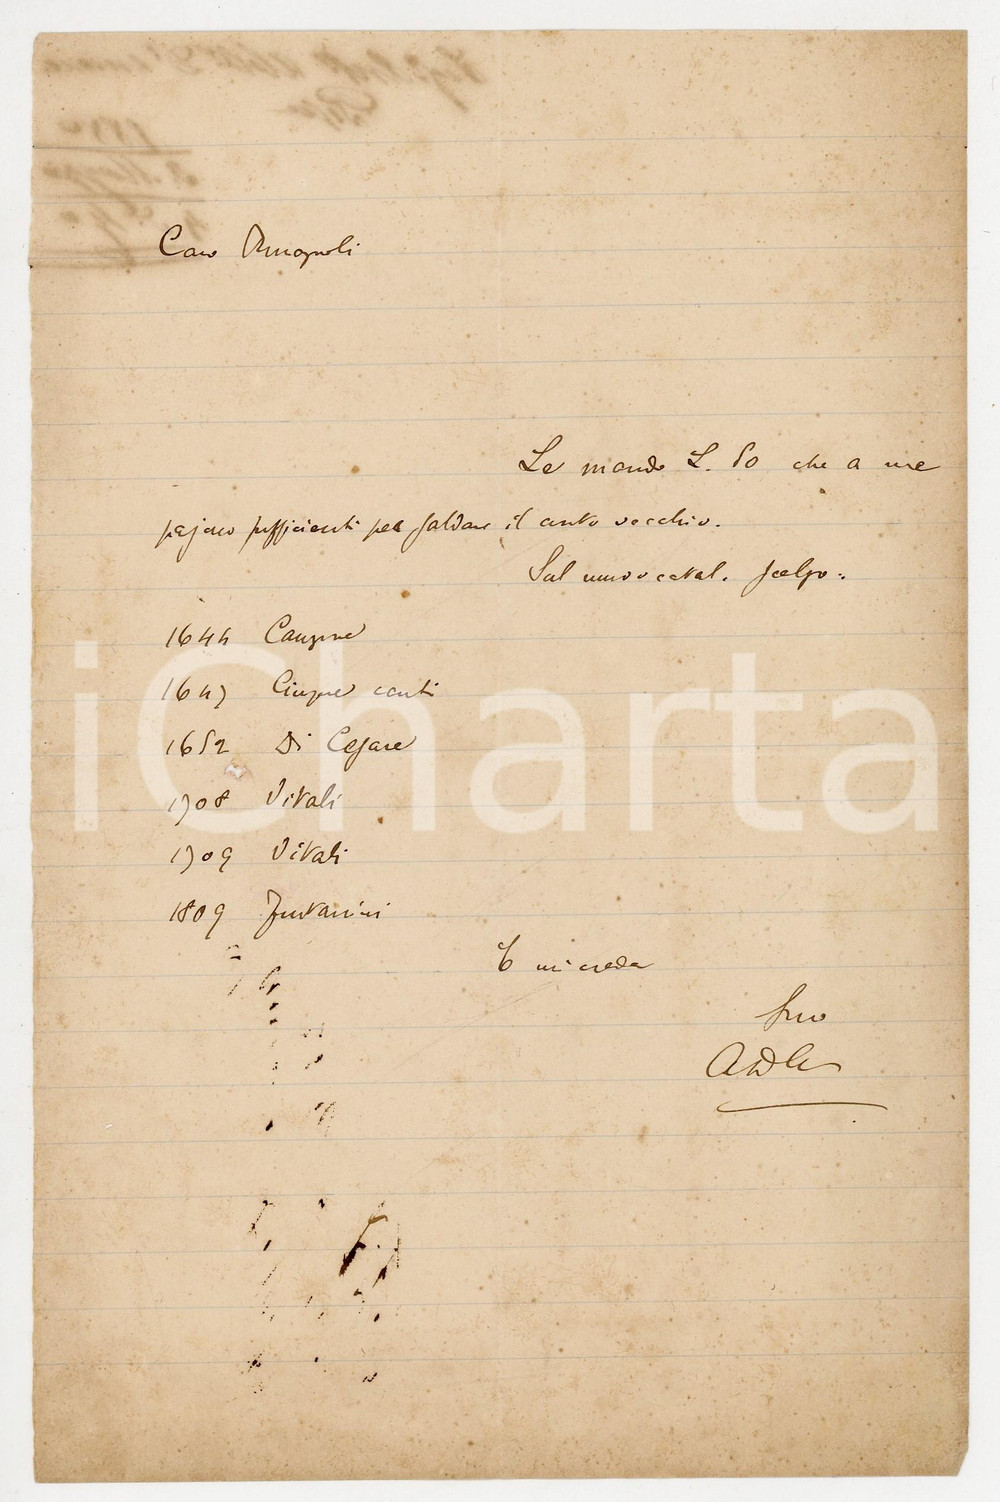 Caro Romagnoli
Le mando L. 50 che a me
pajono sufficienti per saldare il conto vecchio.
Sul nuovo catal. scelgo:
1644 Canzone
1647 Cinque canti
1652 Di Cesare
1708 Vitali
1709 Vitali
1809 Fontanini
E mi creda
suo
iCharta